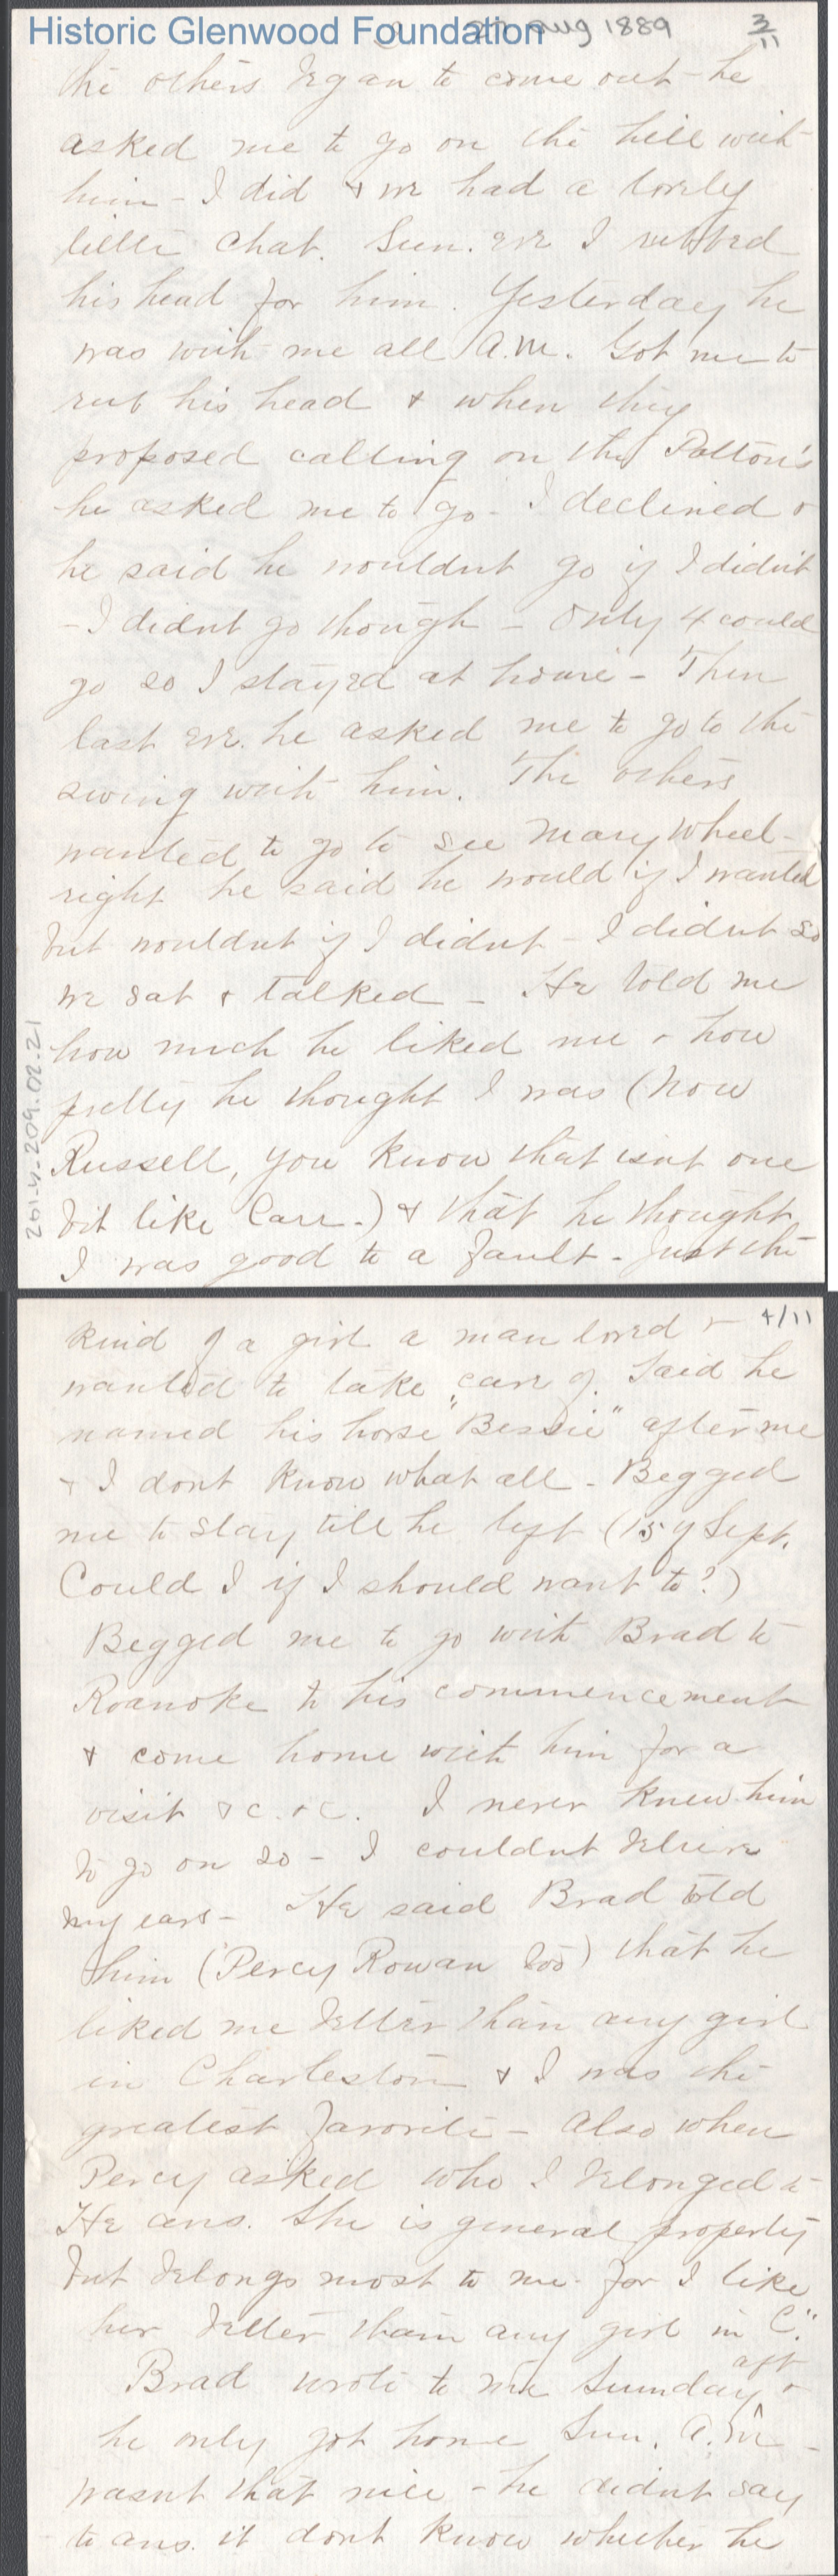 Historic Glenwood Foundation
27 Aug 1889
3/11
the others began to come out - he
asked me to go on the hill with
him - I did & we had a lovely
little chat. Sun. eve I rubbed
his head for him. Yesterday he
was with me all A.M. Got me to
rub his head & when they
proposed calling on the Patton's
he asked me to go - I declined &
he said he wouldnt go if I didn't
- I didnt go though - Only 4 could
go so I stayed at home - Then
last eve. he asked me to go to the
swing with him. The others
wanted to go to see Mary Wheel-
right he said he would if I wanted
but wouldnt if I didnt - I didnt so
we sat & talked - He told me
how much he liked me & how
pretty he thought I was (Now
Russell, you know that isnt one
bit like Carr.) & that he thought
I was good to a fault - Just the
2014.209.02.21
4/11
kind of a girl a man loved &
wanted to take care of. Said he
named his horse "Bessie" after me
& I dont know what all - Begged
me to stay till he left (15 of Sept.
Could I if I should want to?)
Begged me to go with Brad to
Roanoke to his commencement
& come home with him for a
visit &c. &c. I never knew him
to go on so - I couldnt believe
my ears - He said Brad told
him (Percy Rowan too) that he
liked me better than any girl
in Charleston & I was the
greatest favorite - Also when
Percy asked who I belonged to
He ans. She is general property
but belongs most to me - for I like
her better than any girl in C."
Brad wrote to me Sunday aft &
he only got home Sun. A.M -
wasnt that nice - he didnt say
to ans. it dont know whether he